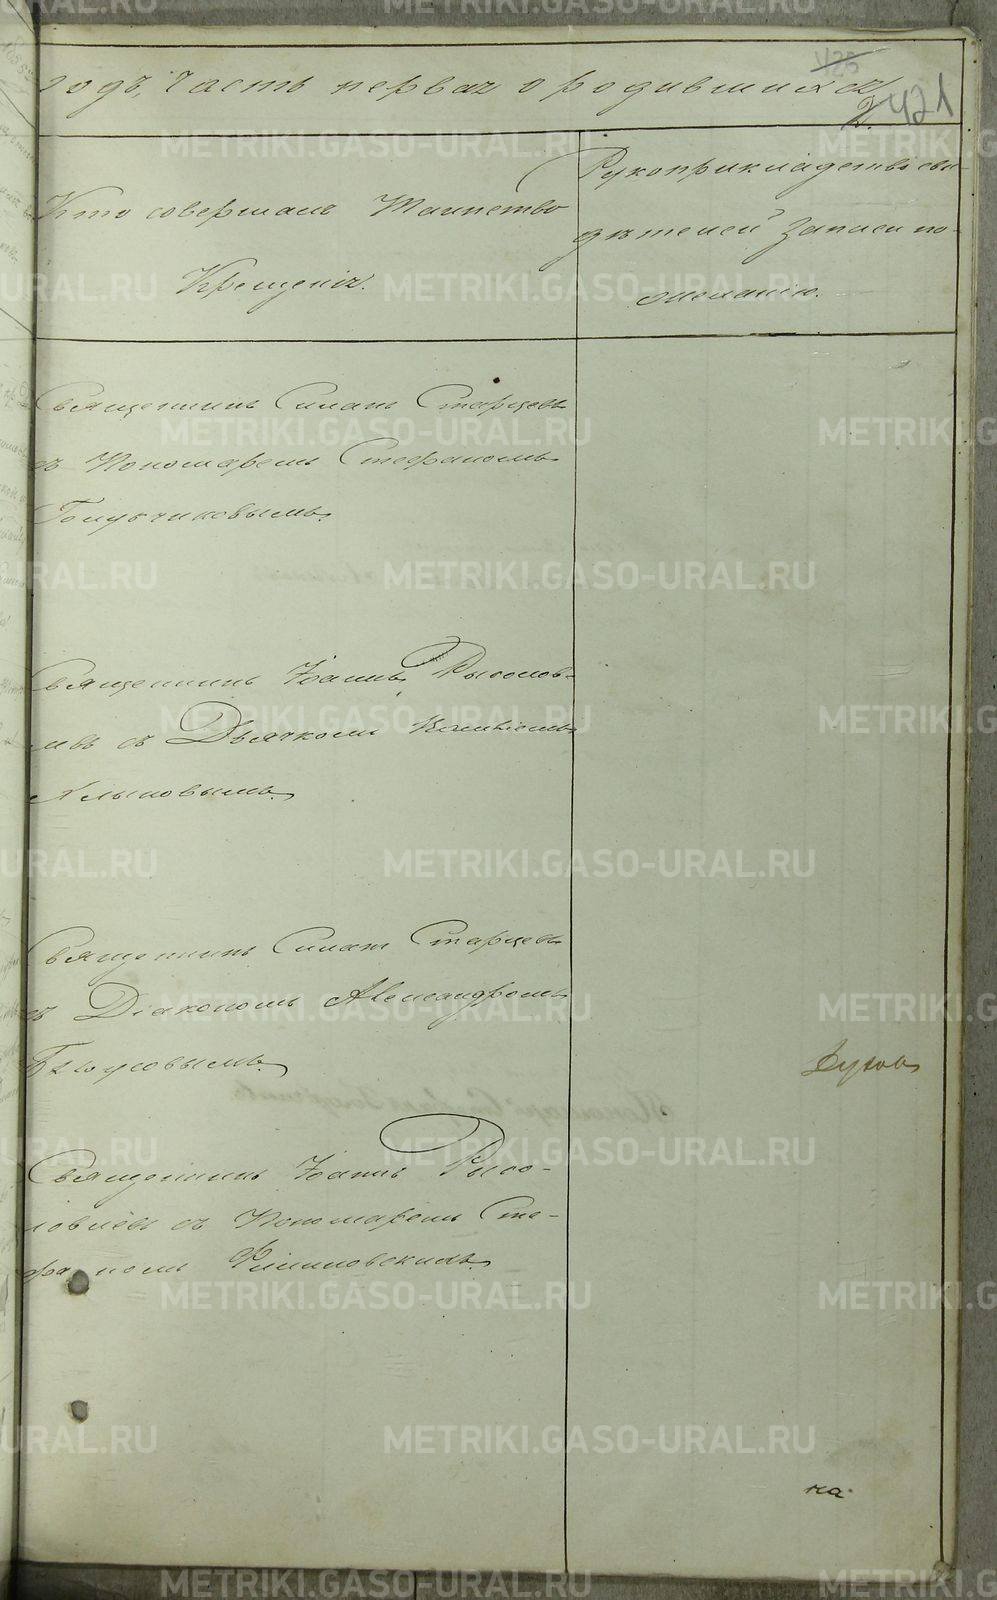 годъ, часть первая о родившихся
425
2. 421
Кто совершалъ Таинство
Крещенія.
Рукоприкладство сви-
дѣтелей записи по
желанію.
Священникъ Силанъ Старцевъ
съ Пономаремъ Стефаномъ
Голубчиковымъ.
Священникъ Іоаннъ Рысолов-
левъ съ Дьячкомъ
Хлыновымъ.
Священникъ Силанъ Старцевъ
съ Діакономъ Александромъ
Зуховъ
Священникъ Іоаннъ Рысо-
ловлевъ съ Пономаремъ Сте-
фаномъ Филиповскимъ.
на
METRIKI.GASO-URAL.RU